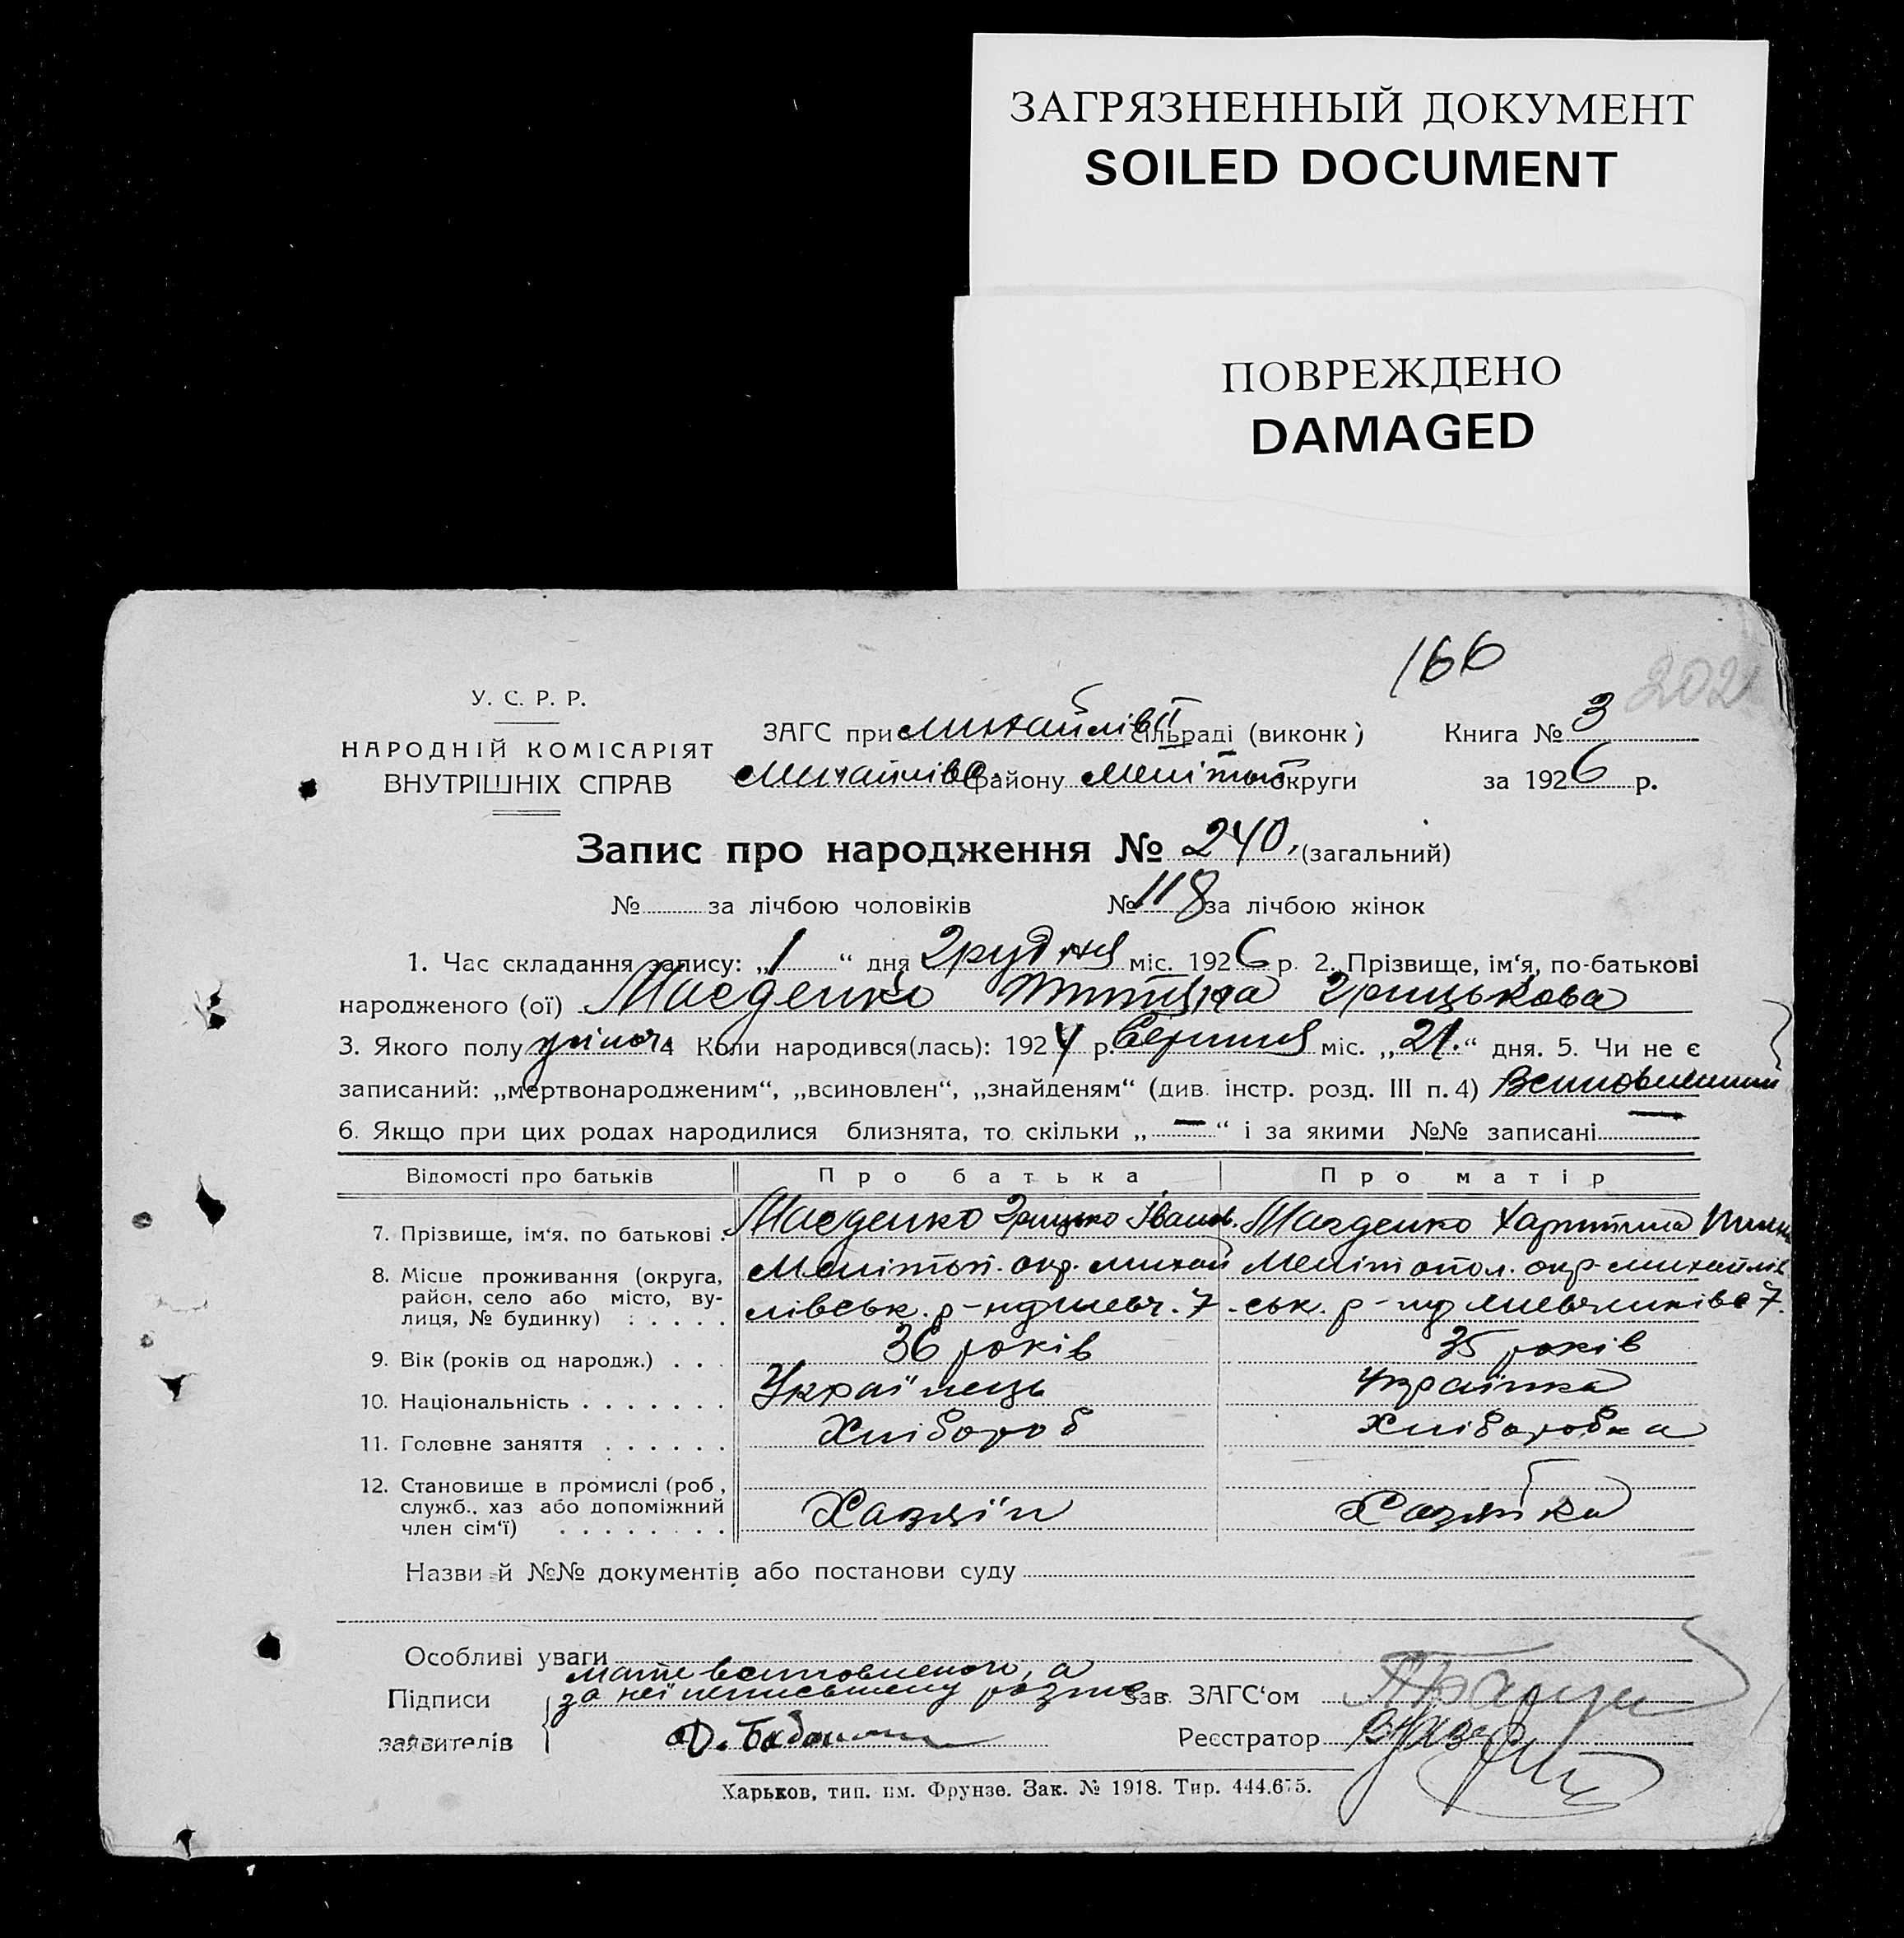 ЗАГРЯЗНЕННЫЙ ДОКУМЕНТ
SOILED DOCUMENT
ПОВРЕЖДЕНО
DAMAGED
166
202
У. С. Р. Р.
НАРОДНІЙ КОМІСАРІЯТ
ВНУТРІШНІХ СПРАВ
ЗАГС при Михайлів II сільраді (виконк)
Книга № 3
Михайлівс. району Мелітоп округи
за 1926 р.
Запис про народження № 240, (загальний)
№ за лічбою чоловіків № 118 за лічбою жінок
1. Час складання запису: „1“ дня Грудня міс. 1926 р. 2. Прізвище, ім‘я, по-батькові
народженого (ої) Грицькова
3. Якого полу жіноч. 4 Коли народився(лась): 1924 р. Серпня міс. „21.“ дня. 5. Чи не є
записаний: „мертвонародженим“, „всиновлен“, „знайденям“ (див. інстр. розд. III п. 4)
6. Якщо при цих родах народилися близнята, то скільки „—“ і за якими №№ записані —
Відомості про батьків Про батька Про матір
7. Прізвище, ім‘я, по батькові . Грицько Іванов. Харитина
8. Місце проживання (округа,
район, село або місто, ву-
лиця, № будинку) : . . . .
Мелітоп. окр. Михай
лівськ. р-ну 7
Мелітопол. окр. Михайлів
ськ. р-ну 7.
9. Вік (років од народж.) . . . 36 років 35 років
10. Національність . . . . . . . Українець Українка
11. Головне заняття . . . . . . Хлібороб Хліборобка
12. Становище в промислі (роб,
служб., хаз або допоміжний
член сім‘ї) . . . . . . . .
Хазяїн Хазяйка
Назви й №№ документів або постанови суду
Особливі уваги
Підписи
заявителів
мати всиновленого, а
за неї неписьмену розпис.
Зав. ЗАГС‘ом
Реєстратор
Харьков, тип. им. Фрунзе. Зак. № 1918. Тир. 444.675.